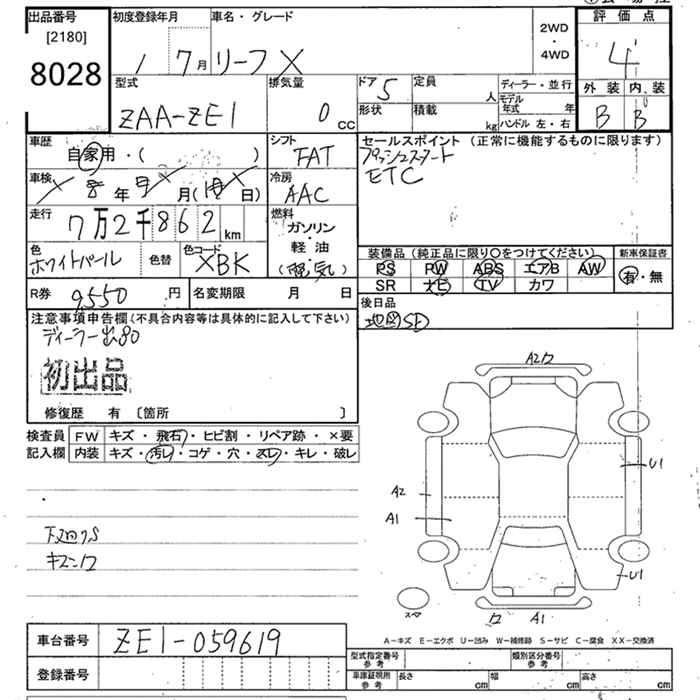 出品番号
[2180]
8028
初度登録年月
1 7月
車名・グレード
リーフ X
2WD
・
4WD
評価点
4
外装 内装
B B
型式
ZAA-ZE1
排気量
0 CC
ドア 5
定員 人
形状
積載 kg
ディーラー・並行
モデル年式 年
ハンドル 左・右
車歴
自家用・( )
シフト
FAT
セールスポイント (正常に機能するものに限ります)
プッシュスタート
ETC
車検
年 月( 日)
冷房
AAC
走行
7万2千862km
燃料
ガソリン
軽・油
(電気)
色
ホワイトパール
色替
色コード
XBK
装備品 (純正品に限り〇をつけてください)
新車保証書
PS PW ABS エアB AW
SR ナビ TV カワ
有・無
R券 9,550円
名変期限 月 日
後日品
地図SD
注意事項申告欄 (不具合内容等は具体的に記入して下さい)
ディーラー出品
初出品
修復歴 有 〔箇所 〕
検査員
記入欄
FW キズ・飛石・ヒビ割・リペア跡・×要
内装 キズ・汚レ・コゲ・穴・スレ・キレ・破レ
下廻りS
キズ
A2
U1
A2
A1
U1
A1
スマ
A-キズ E-エクボ U-凹み W-補修跡 S-サビ C-腐食 XX-交換済
車台番号 ZE1-059619
登録番号
型式指定番号
参考
類別区分番号
参考
車庫証明用
参考
長さ cm 幅 cm 高さ cm